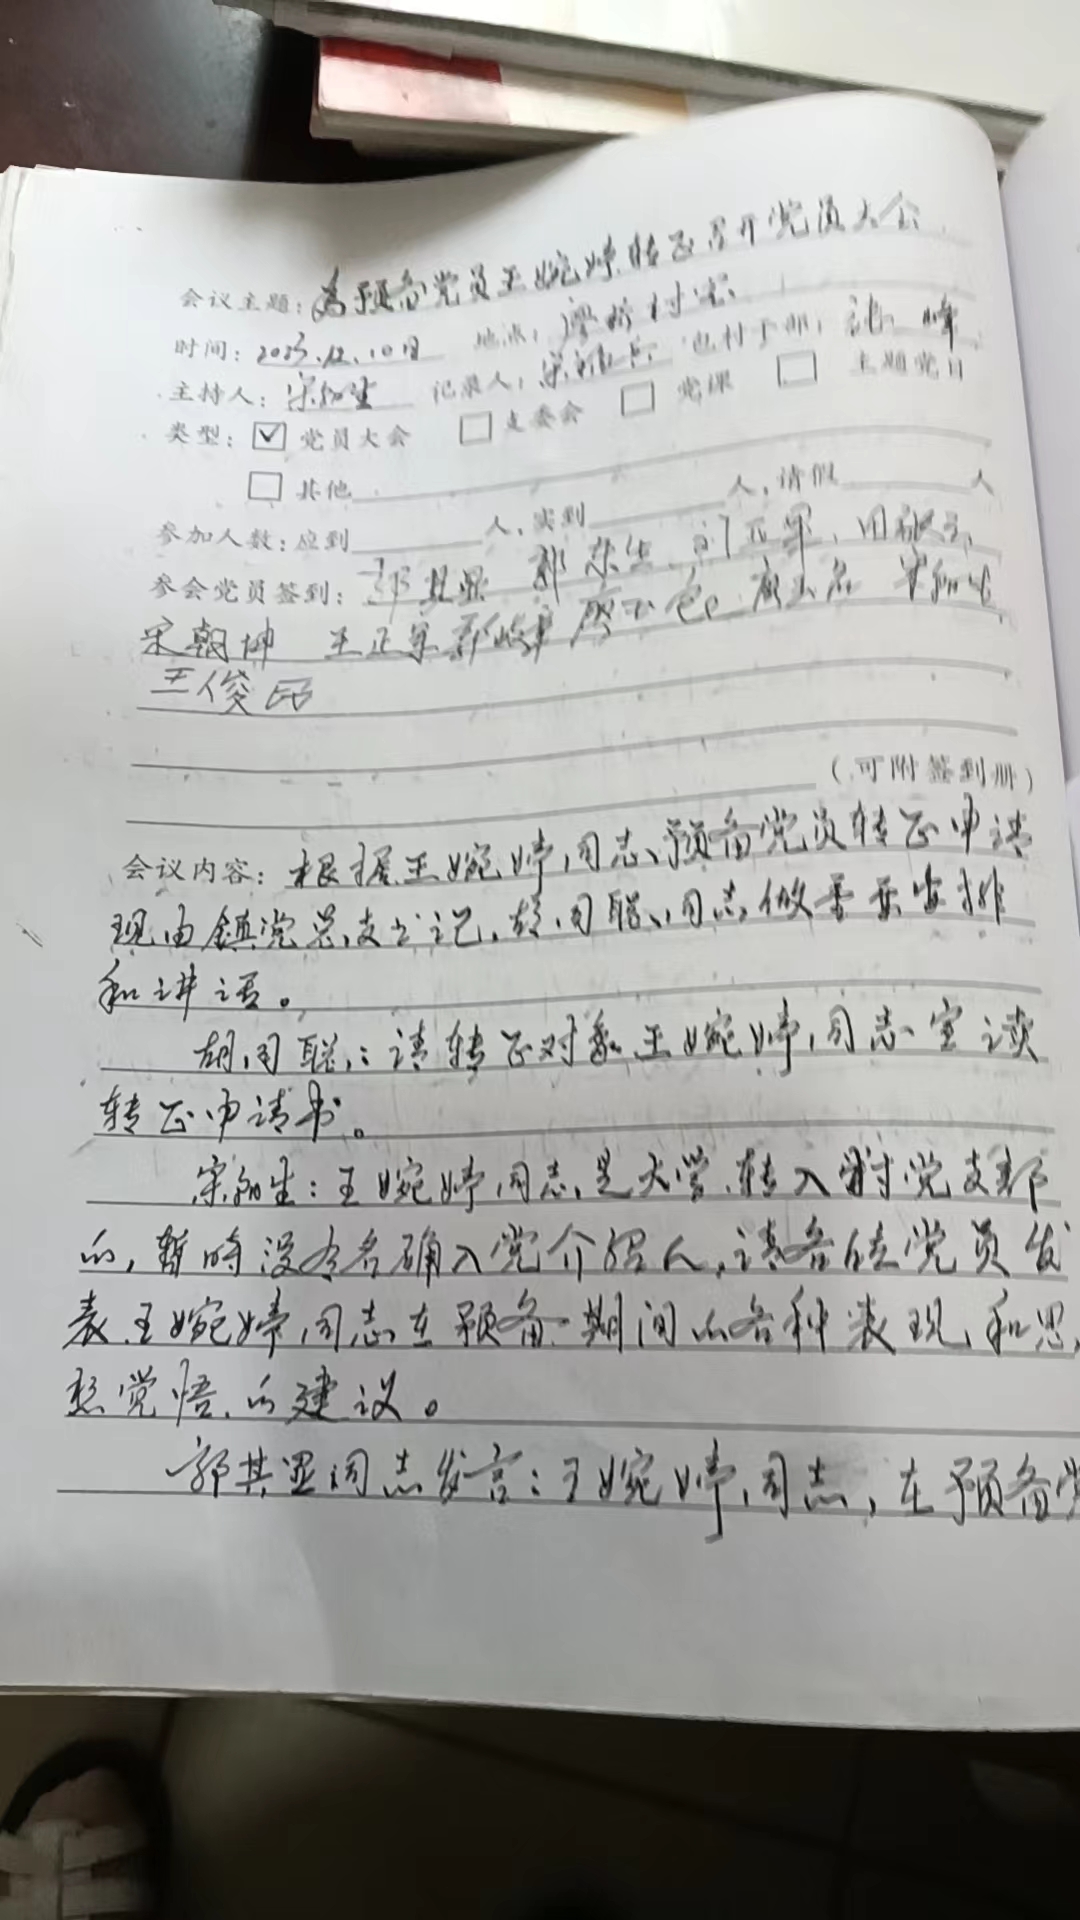 会议主题：为预备党员王婉婷转正召开党员大会
时间：2023.12.10日 地点：村室
主持人：宋 记录人：宋 包村干部：峰
类型：☑党员大会 □支委会 □党课 □主题党日
□其他
参加人数：应到 人，实到 人，请假 人
参会党员签到：郭其显 郭
宋朝坤 王正军
王俊
（可附签到册）
会议内容：根据王婉婷同志预备党员转正申请
现由镇党总支书记，胡同聪同志做重要安排
和讲话。
胡同聪：请转正对象王婉婷同志宣读
转正申请书。
宋生：王婉婷同志是大学转入我村党支部
的，暂时没有名确入党介绍人，请各位党员发
表王婉婷同志在预备期间的各种表现和思
想觉悟的建议。
郭其显同志发言：王婉婷同志，在预备党